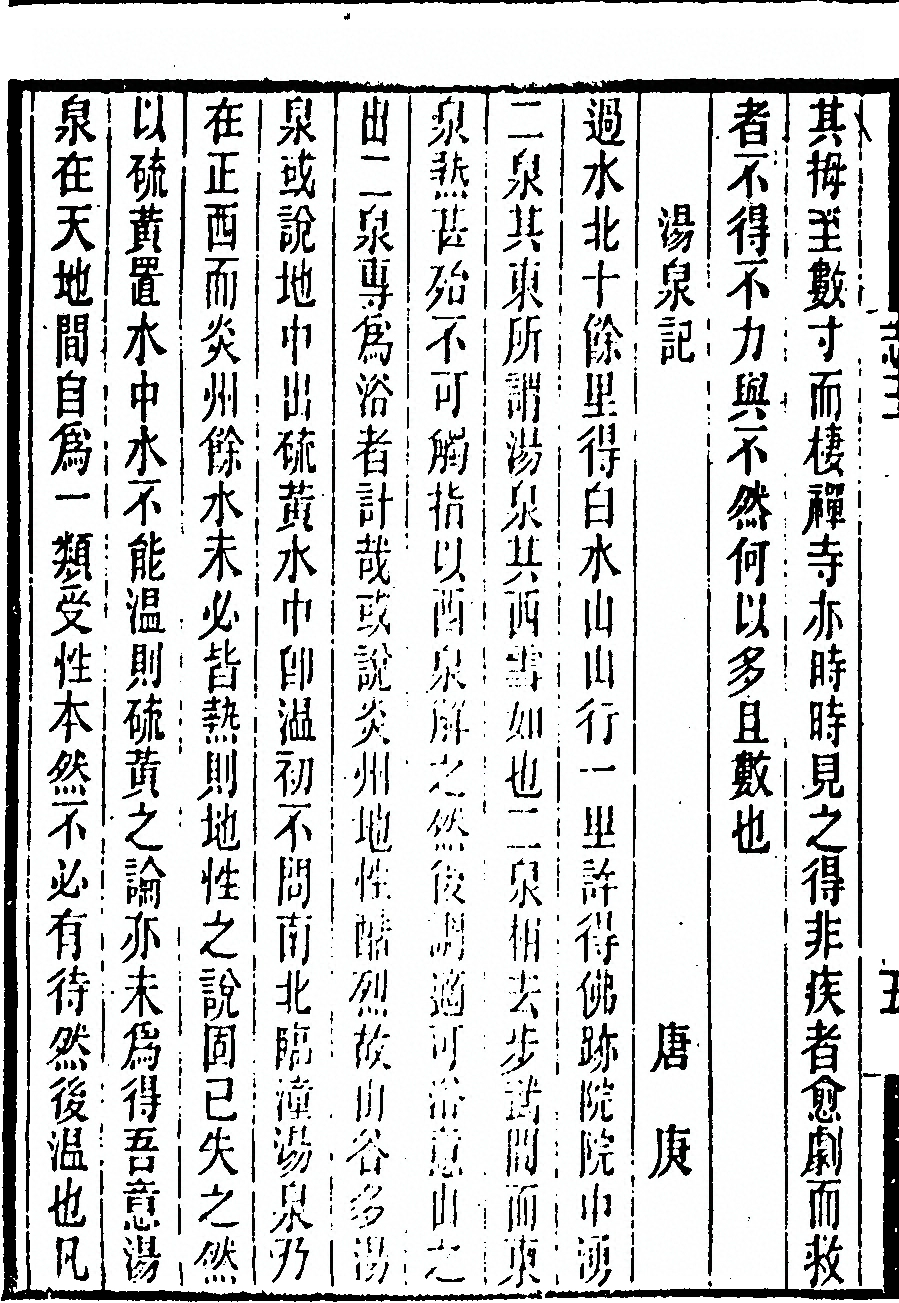 其拇至數寸而棲禪寺亦時時見之得非疾者愈劇而救
者不得不力與不然何以多且數也
湯泉記 唐庚
過水北十餘里得白水山山行一里許得佛跡院院中湧
二泉其東所謂湯泉其西雪如也二泉相去步武間而東
泉熱甚殆不可觸指以西泉解之然後調適可浴意山之
出二泉專為浴者計哉或說炎州地性酷烈故山谷多湯
泉或說地中出硫黃水中即溫初不問南北臨潼湯泉乃
在正西而炎州餘水未必皆熱則地性之說固已失之然
以硫黃置水中水不能温則硫黃之論亦未為得吾意湯
泉在天地間自為一類受性本然不必有待然後温也凡